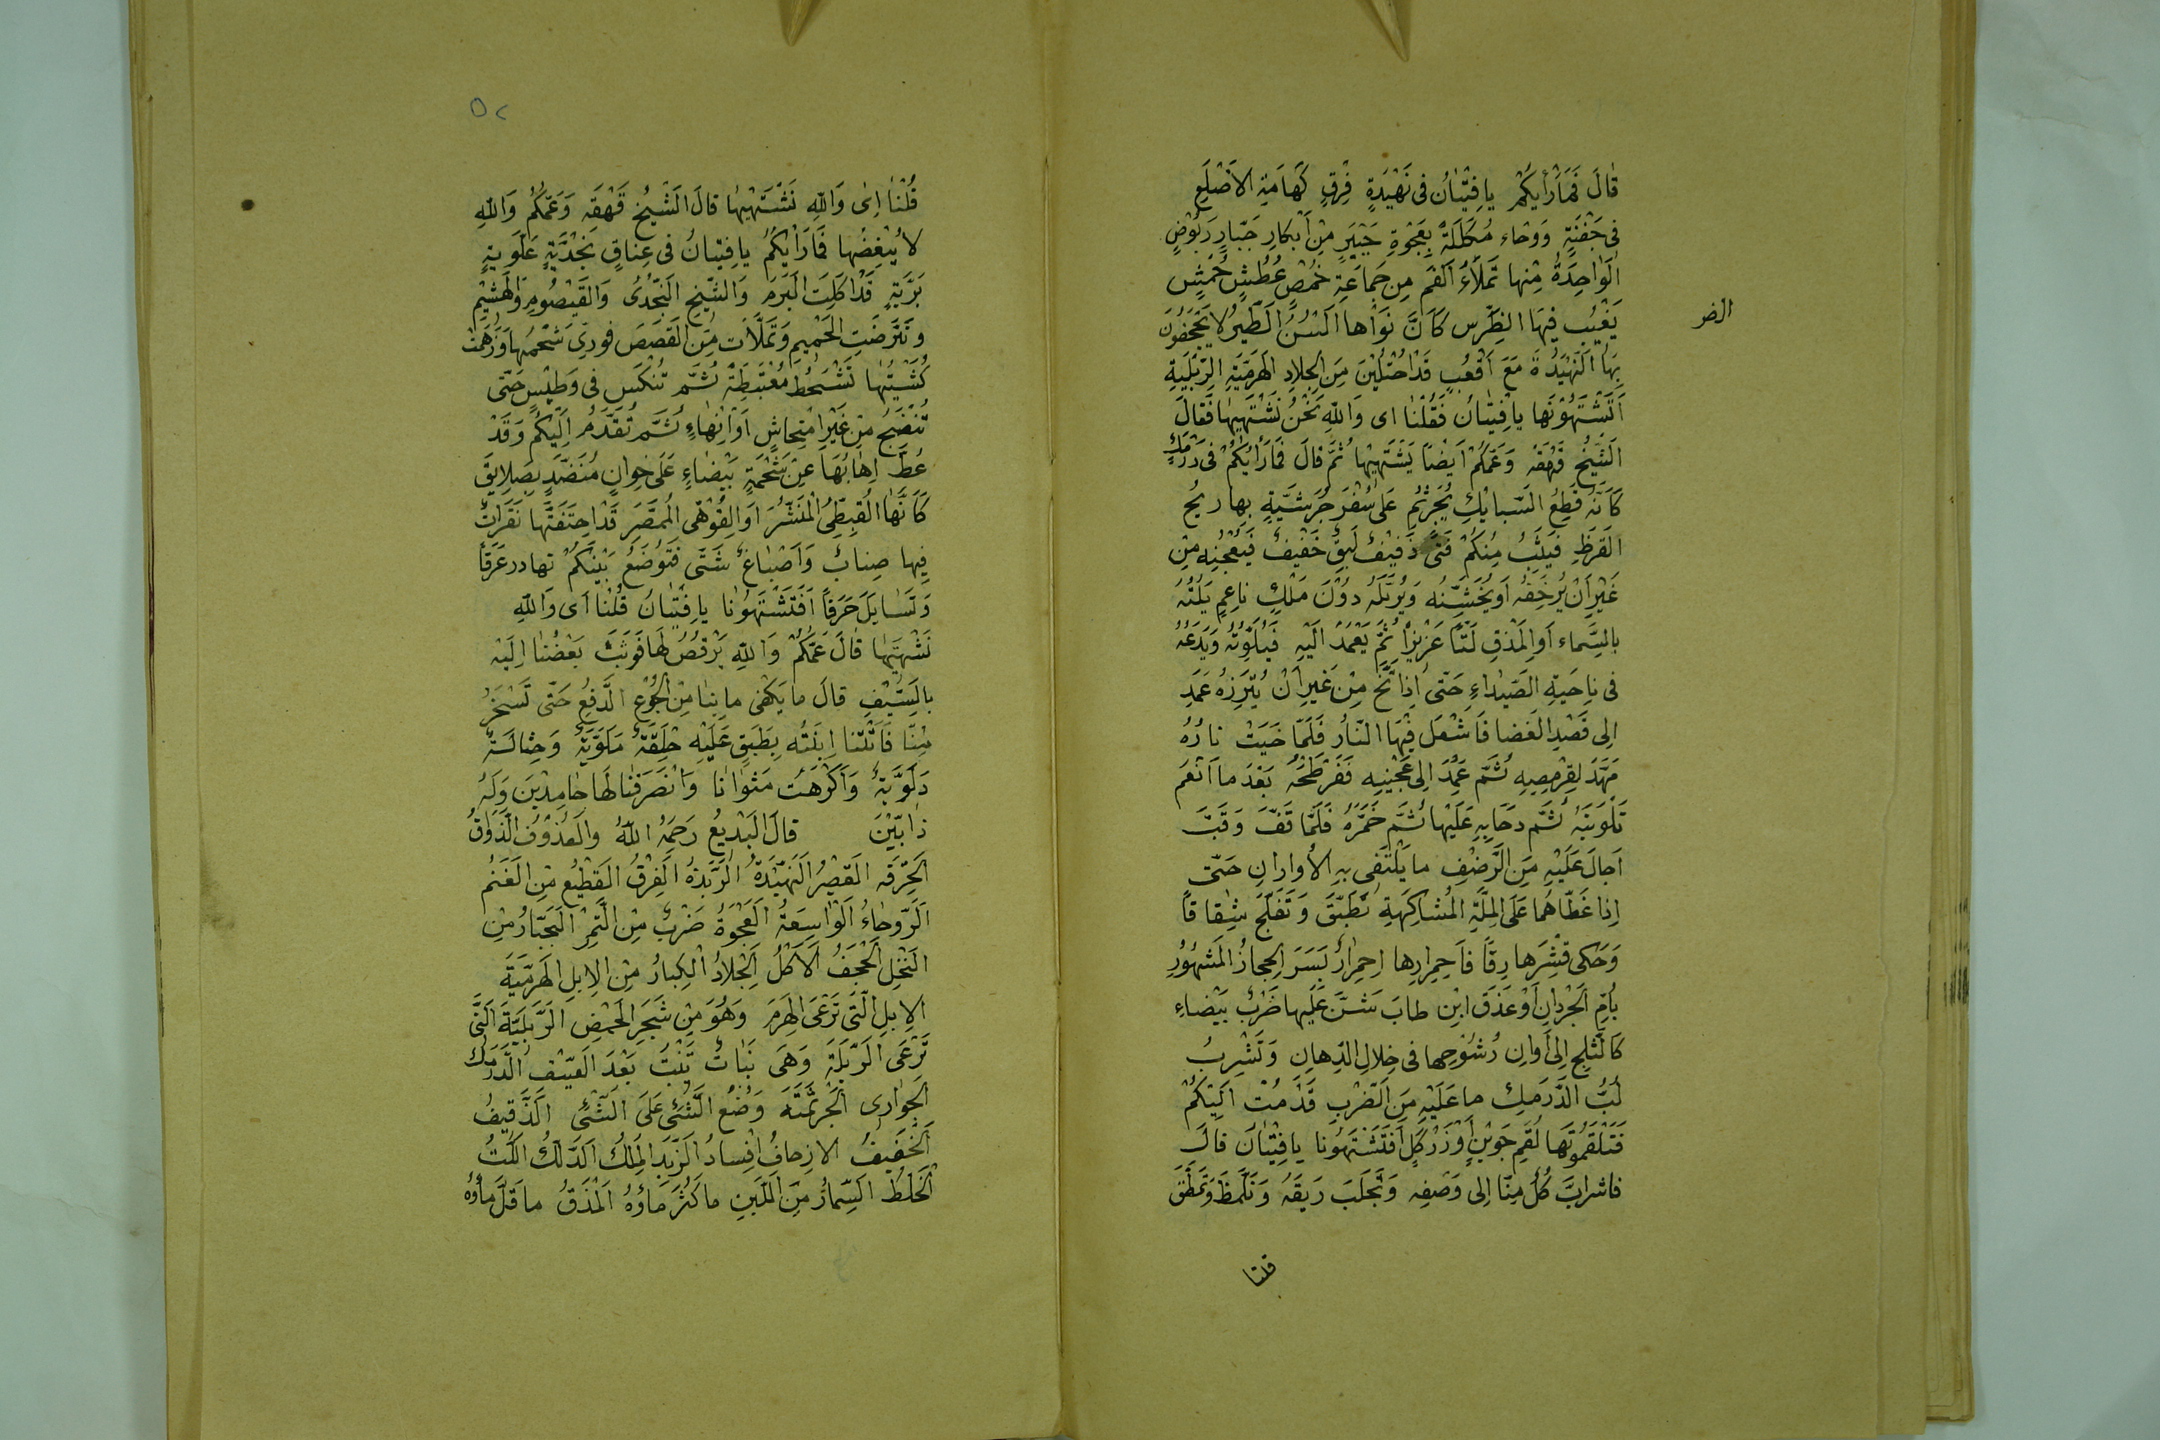 قالَ فَمَا رَأْيكُمْ يا فِتْيانُ فى نَهْيدَةٍ فِرْقٍ كَهامَةِ الاَصْلَعِ
فى جَفْنَةٍ وَوحاء مُكَلَّلَةٌ بِعَجْوَةِ خَيْبَرٍ مِنْ اَبْكارِ جَبّارٍ رَبُوْضٍ
الْوَاحِدَةُ مِنْها تَملَاءُ الفَمَ مِن جَماعَةٍ خُمْصٍ عُطْشٍ خُمْشٍ
يَغْيْبُ فِيهَا الضِّرْس كَاَنَّ نَوَاها اَلْسُنُ الطَّيْرُ لا يَجْحَفُونَ
الضر
بِهَا النَّهْيدُةَ مَعَ اَقْعُبٍ قَدْ احْتُلِبْنَ مِنَ الْجِلادِ الهَرَمِيَّةِ الرَّبَلِيَّةِ
اَتَشْتَهُوْنَها يا فِتْيانُ فَقُلْنا اى وَاللّهِ نَحْنُ نَشْتَهِيها فَقالَ
اَلشَّيْخُ قَهْقَه وَعَمُّكُمْ اَيضًا يَشْتَهِيها ثُمَّ قالَ فَمَا رَأْيُكُمْ فى دَرْمَكٍ
كَاَنَّهُ قِطَعُ السَّبايْكِ يُجَرْثَمُ عَلى سُفْرَ جَرَشيَّةٍ بِها ريحُ
القَرَظِ فَيَثِبُ مِنكُمْ فَتىً دَفِيْفٌ لَبِقٌ خَفيفٌ فَيَعْجِنُه مِنْ
غَيْرِ اَنْ يُرْحِفَهُ اَو يُخَشِّنُه وَيُزَيِّلَهُ دُوْنَ مَلْكٍ ناعِمٍ يَلُتُّهُ
بالسَّماء اَوِ المَذْقِ لَتًّا عَزْيزًا ثُمَّ يَعْمَدُ اِلَيْهِ فَيُلَوِّثُهُ وَيَدَعُهُ
فى ناحَيَةِ الصَّيْداءِ حَتّى اِذا تَخَّ مِنْ غَيرِ اَنْ يُتَرِّزهُ عَمَدِ
اِلى قَصْدِ الغَضا فَاَشْعَلَ فِيْهَا النّارُ فَلَمّا خَبَتْ نارُهُ
مَهَّدَ لقِرْمِصِهِ ثُمَّ عَمَدَ اِلى عَجْيِنِهِ فَفَرْطَحَهُ بَعْدَ ما اَنْعَمَ
تَلْوِيَتَهُ ثُمَّ دَحَابِهِ عَلَيْها ثُمَّ خَمَّرَهُ فَلَمّا قَفَّ وَقَبَّ
اَحالَ عَلَيْهِ مِنَ الرَّضْفِ ما يَلْتَقى بِهِ الأوارانِ حَتّى
اِذا غَطّاهُما عَلى المِلّةِ المُشاكِهَةِ تَطَبَّقَ وَتَفَلَّجَ شِقاقًا
وَحَكى قِشْرَها رِقًا فَاَحِمِرارِها اِحمِرارُ بَسَرَ الحِجازُ المَشْهُوْرُ
بِأمِّ الْجَرْدانِ اَوْ عَذْقَ ابْنِ طابَ شُنَّ عَلَيها ضَرْبٌ بَيْضاءِ
كَالثَّلْجِ اِلى أوان رُسُوْخِها فى خِلالِ الدِّهانِ وَتَشْرِبُ
لُبَّ الدَّرْمَكِ ما عَلَيْهِ مِنَ الضَّرْبِ قَدْمُتْ اِلَيْكُمْ
فَتَلْقَمُوْنَها لُقَمِ جُوَيْنٍ اَوْ زَرْكَلٍ اَفَتَشْتَهُونَا يا فِتْيانَ قالَ
فاشرابَّ كُلٌّ مِنّا اِلى وَصْفِه وَتَجَلَّبَ رِيقَهُ وَتَلَمَّظَ وَتَمَطَّقَ
قلنا
٥٢
قُلْنا اِى وَاللّهِ نَشْتَهِيْها قالَ الشْيخ قَهْقَه وَعَمُّكُمْ وَاللّهِ
لا يُبْغِضُها فَمارَأْيكُمُ يا فِتْيانُ فى عِناقٍ نَجْدَيَّةٍ عَلَوِيةٍ
بَرَّيَةٍ قَدْ اَكَلَتِ البَرَمَ وَالشّيح النَّجْدِىُّ وَالقَيْصُومِ والهَشْيِمِ
وتَبَرَّضَتِ الحَمْيمِ وَتَمَلَّأت مِنَ القَصَصِ فوَرِىَ شَحْمُها وَزَهِمَتْ
كُشْيَتُها تَشْحَطُ مُعْتَبَطَةً ثُمَّ تُنكَس فى وَطِيْسٍ حَتّى
تُنْضَجُ مِنْ غَيْرِ امْتِحاشٍ اَوْ اِنْهاءٍ ثُمَّ تُقَدَّمُ اِلَيْكُم وَقَدْ
عُطَّ اِهابُهَا عِنْ شَحْمَةٍ بَيْضاءٍ عَلى خِوانٍ مُنَضَّدٍ بِصَلايِقَ
كَاَنَّهَا القُبِطيُ المُنَشَّرُ اَوِ القُوْهى المُمَصَّرِ قَدْ احتَفَتَّها نَقَرَاتٌ
فِيها صِنابٌ وَاَصْباغٌ شَتّى فَتَوُضَعُ بَيْنكُمْ تهادر عَرَقًا
وَتَسايَلَ مَرَقًا اَفَتَشْتَهُوْنا يا فِتْيانُ قُلْنا اى وَاللّهِ
نَشْتَهيها قالَ عَمُّكُمْ وَاللّهِ يَرْقُصُ لَها فَوَثَبَ بَعْضُنا اِلَيْهِ
بالسَّيْفِ قالَ ما يَكْفى ما بِنا مِنَ الجُوْعِ الدَّقِعُ حَتّى تَسْخَرُ
مِنّا فَاتَتْنا اِبنَتُه بِطَبَقٍ عَلَيْهِ جِلَّقَةٌ مَلوِيَّةٌ وَحِثالَةٌ
دَلَوِيَّةٌ وَاَكْرَهَت مَثوانا وَانْصَرَفنا لَها حامِدْينَ وَلَهُ
ذابّيْنَ قالَ البَدْيعُ رَحِمَهُ اللّهُ والعُدْوفُ الذَّوَاقُ
الخِرْقَه القَصِيْرُ النَّهْيدَةُ الزُبدَةُ الفِرْقُ القَطْيعُ مِنَ الغَنَمُ
الرَّوحاءُ الوَاسِعَةُ العَجْوَةُ ضَرْبٌ مِنَ التَّمْرِ الجَبّارُ مِنَ
النَّخْلِ الجَحْفُ الاَكْلُ الجِلادُ الْكِبارُ مِنَ الاِبلِ الهَرَمَيَّةَ
الاِبلِ الّتى تَرْعَى الهَرَمَ وَهُوَ مِنْ شَجَرِ الحَمْضِ الرَّبَلِيَّةَ الّتى
تَرْعَى الرَّبْلَةَ وَهَى نَبَاتٌ يَنْبُتُ بَعْدَ الصَّيْفِ الدَّرْمَك
الحَوّارى الجَرثَمَة وَضْعُ الشَّئىِ عَلىَ الشّئىِ الدَّفِيفُ
الخَفْيفُ الازِحافُ اِفْسادُ الزَّبَدِ المَلكُ الدَّلكُ اللَّتُ
الخَلْطُ السَّمارُ مِنَ اللّبَنِ ما كَثُرَ ماؤهُ المَذْقُ ما قَلَّ ماؤُهُ